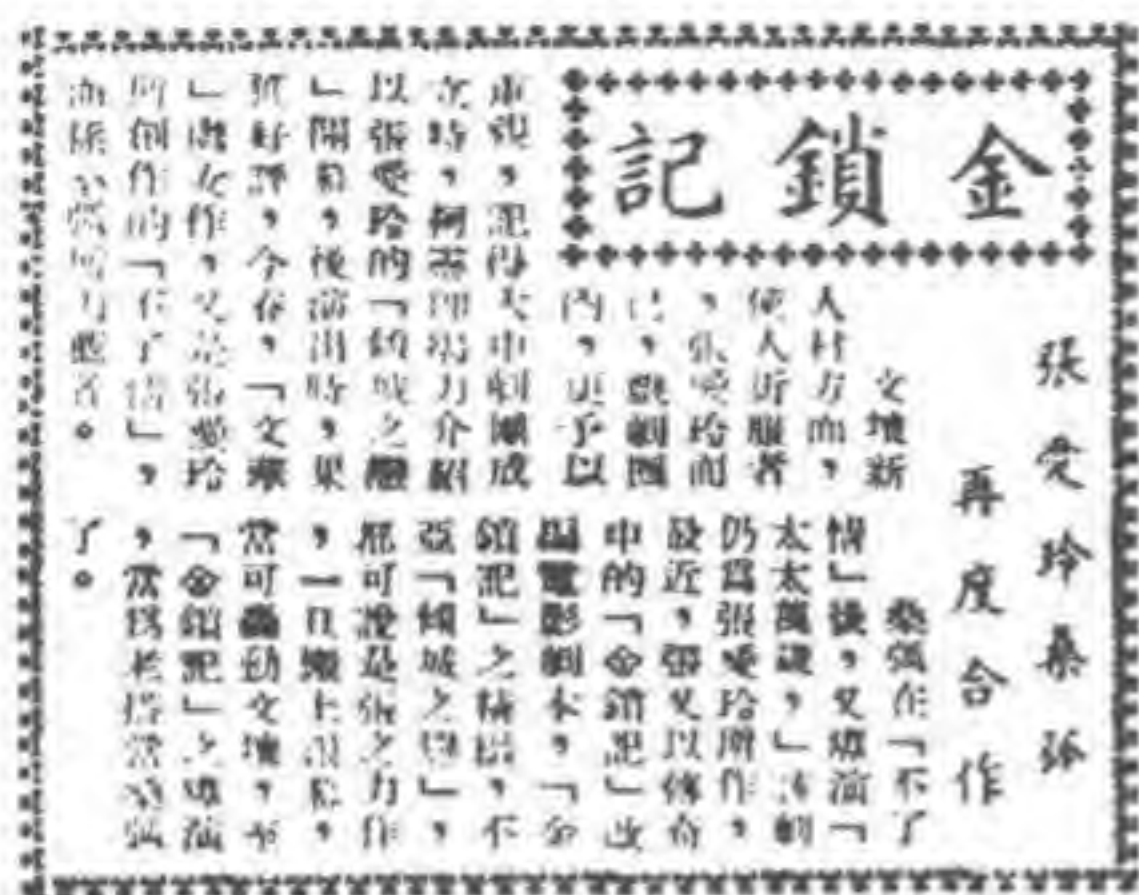 金鎖記
張爱玲桑弧
再度合作
文壇新
人材方面，
使人折服者
，張愛玲而
已，戲劇圈
內，更予以
重視，記得大中劇團成
立時，柯靈即竭力介紹
以張愛玲的「傾城之戀
」開幕，後演出時，果
獲好評，今春，「文華
」處女作，又是張愛玲
所創作的「不了情」，
者。
桑弧在「不了
情」後，又導演「
太太萬歲，」該劇
仍爲張愛玲所作，
最近，張又以傳奇
中的「金鎖記」改
編電影劇本，「金
鎖記」之精彩，不
亞「傾城之戀」，
都可說是張之力作
，一旦搬上銀幕，
當可轟動文壇，至
「金鎖記」之導演
，當爲老搭當桑弧
了。